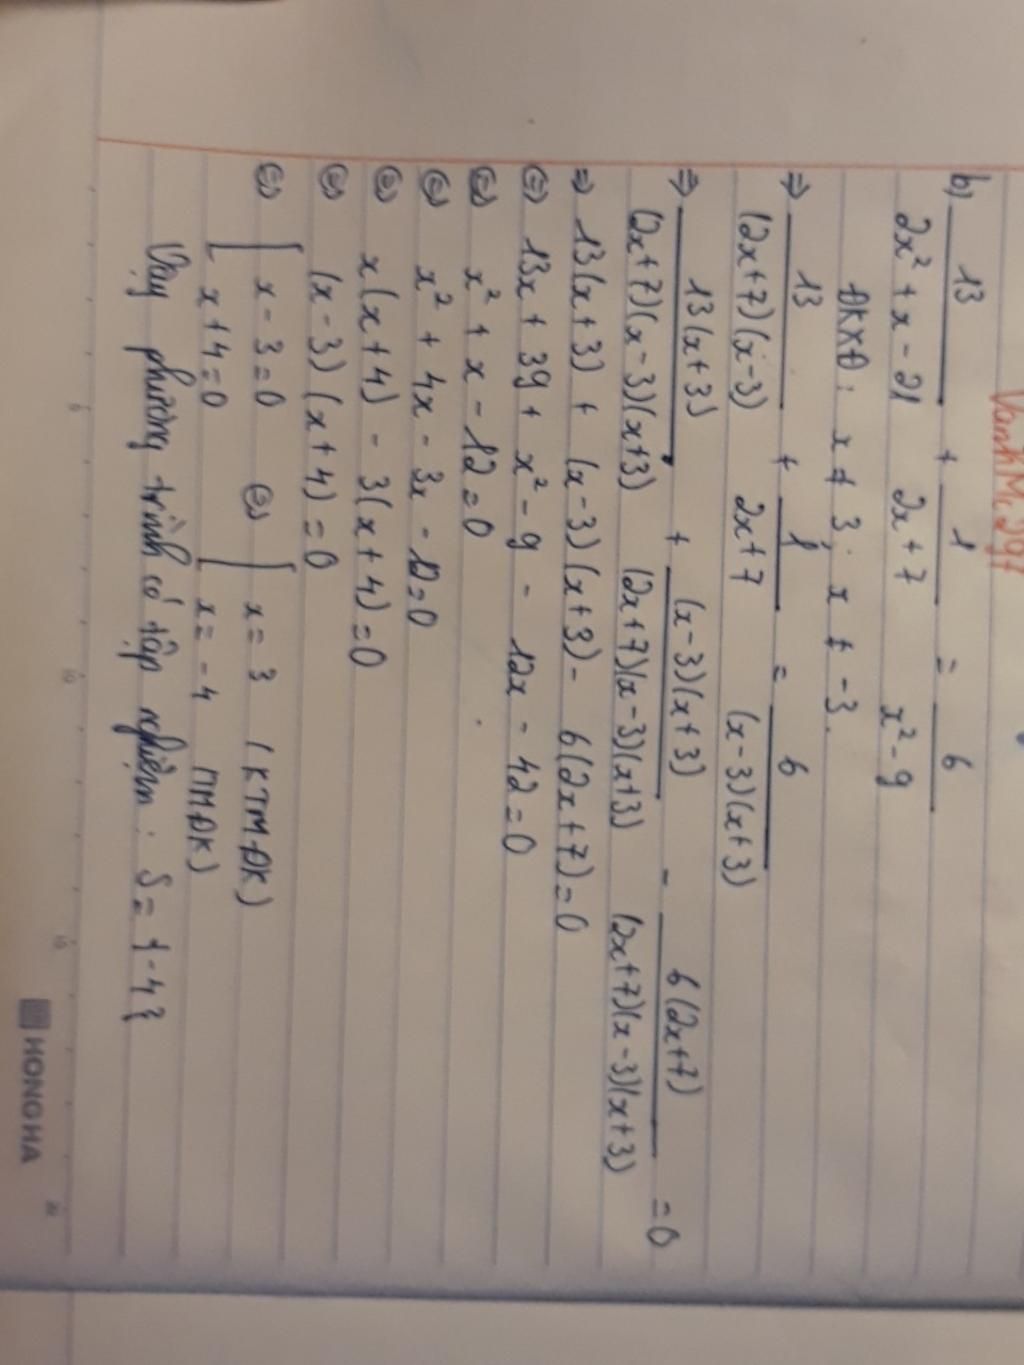 VanhMc297
b) 13/(2x² + x - 21) + 1/(2x + 7) = 6/(x² - 9)
ĐKXĐ: x ≠ 3; x ≠ -3.
=> 13/((2x+7)(x-3)) + 1/(2x+7) = 6/((x-3)(x+3))
=> 13(x+3)/((2x+7)(x-3)(x+3)) + (x-3)(x+3)/((2x+7)(x-3)(x+3)) - 6(2x+7)/((2x+7)(x-3)(x+3)) = 0
=> 13(x+3) + (x-3)(x+3) - 6(2x+7) = 0
<=> 13x + 39 + x² - 9 - 12x - 42 = 0
<=> x² + x - 12 = 0
<=> x² + 4x - 3x - 12 = 0
<=> x(x+4) - 3(x+4) = 0
<=> (x-3)(x+4) = 0
<=> [ x - 3 = 0 <=> [ x = 3 (KTMĐK)
x + 4 = 0 x = -4 TMĐK)
Vậy phương trình có tập nghiệm: S = {-4}
HONG HA